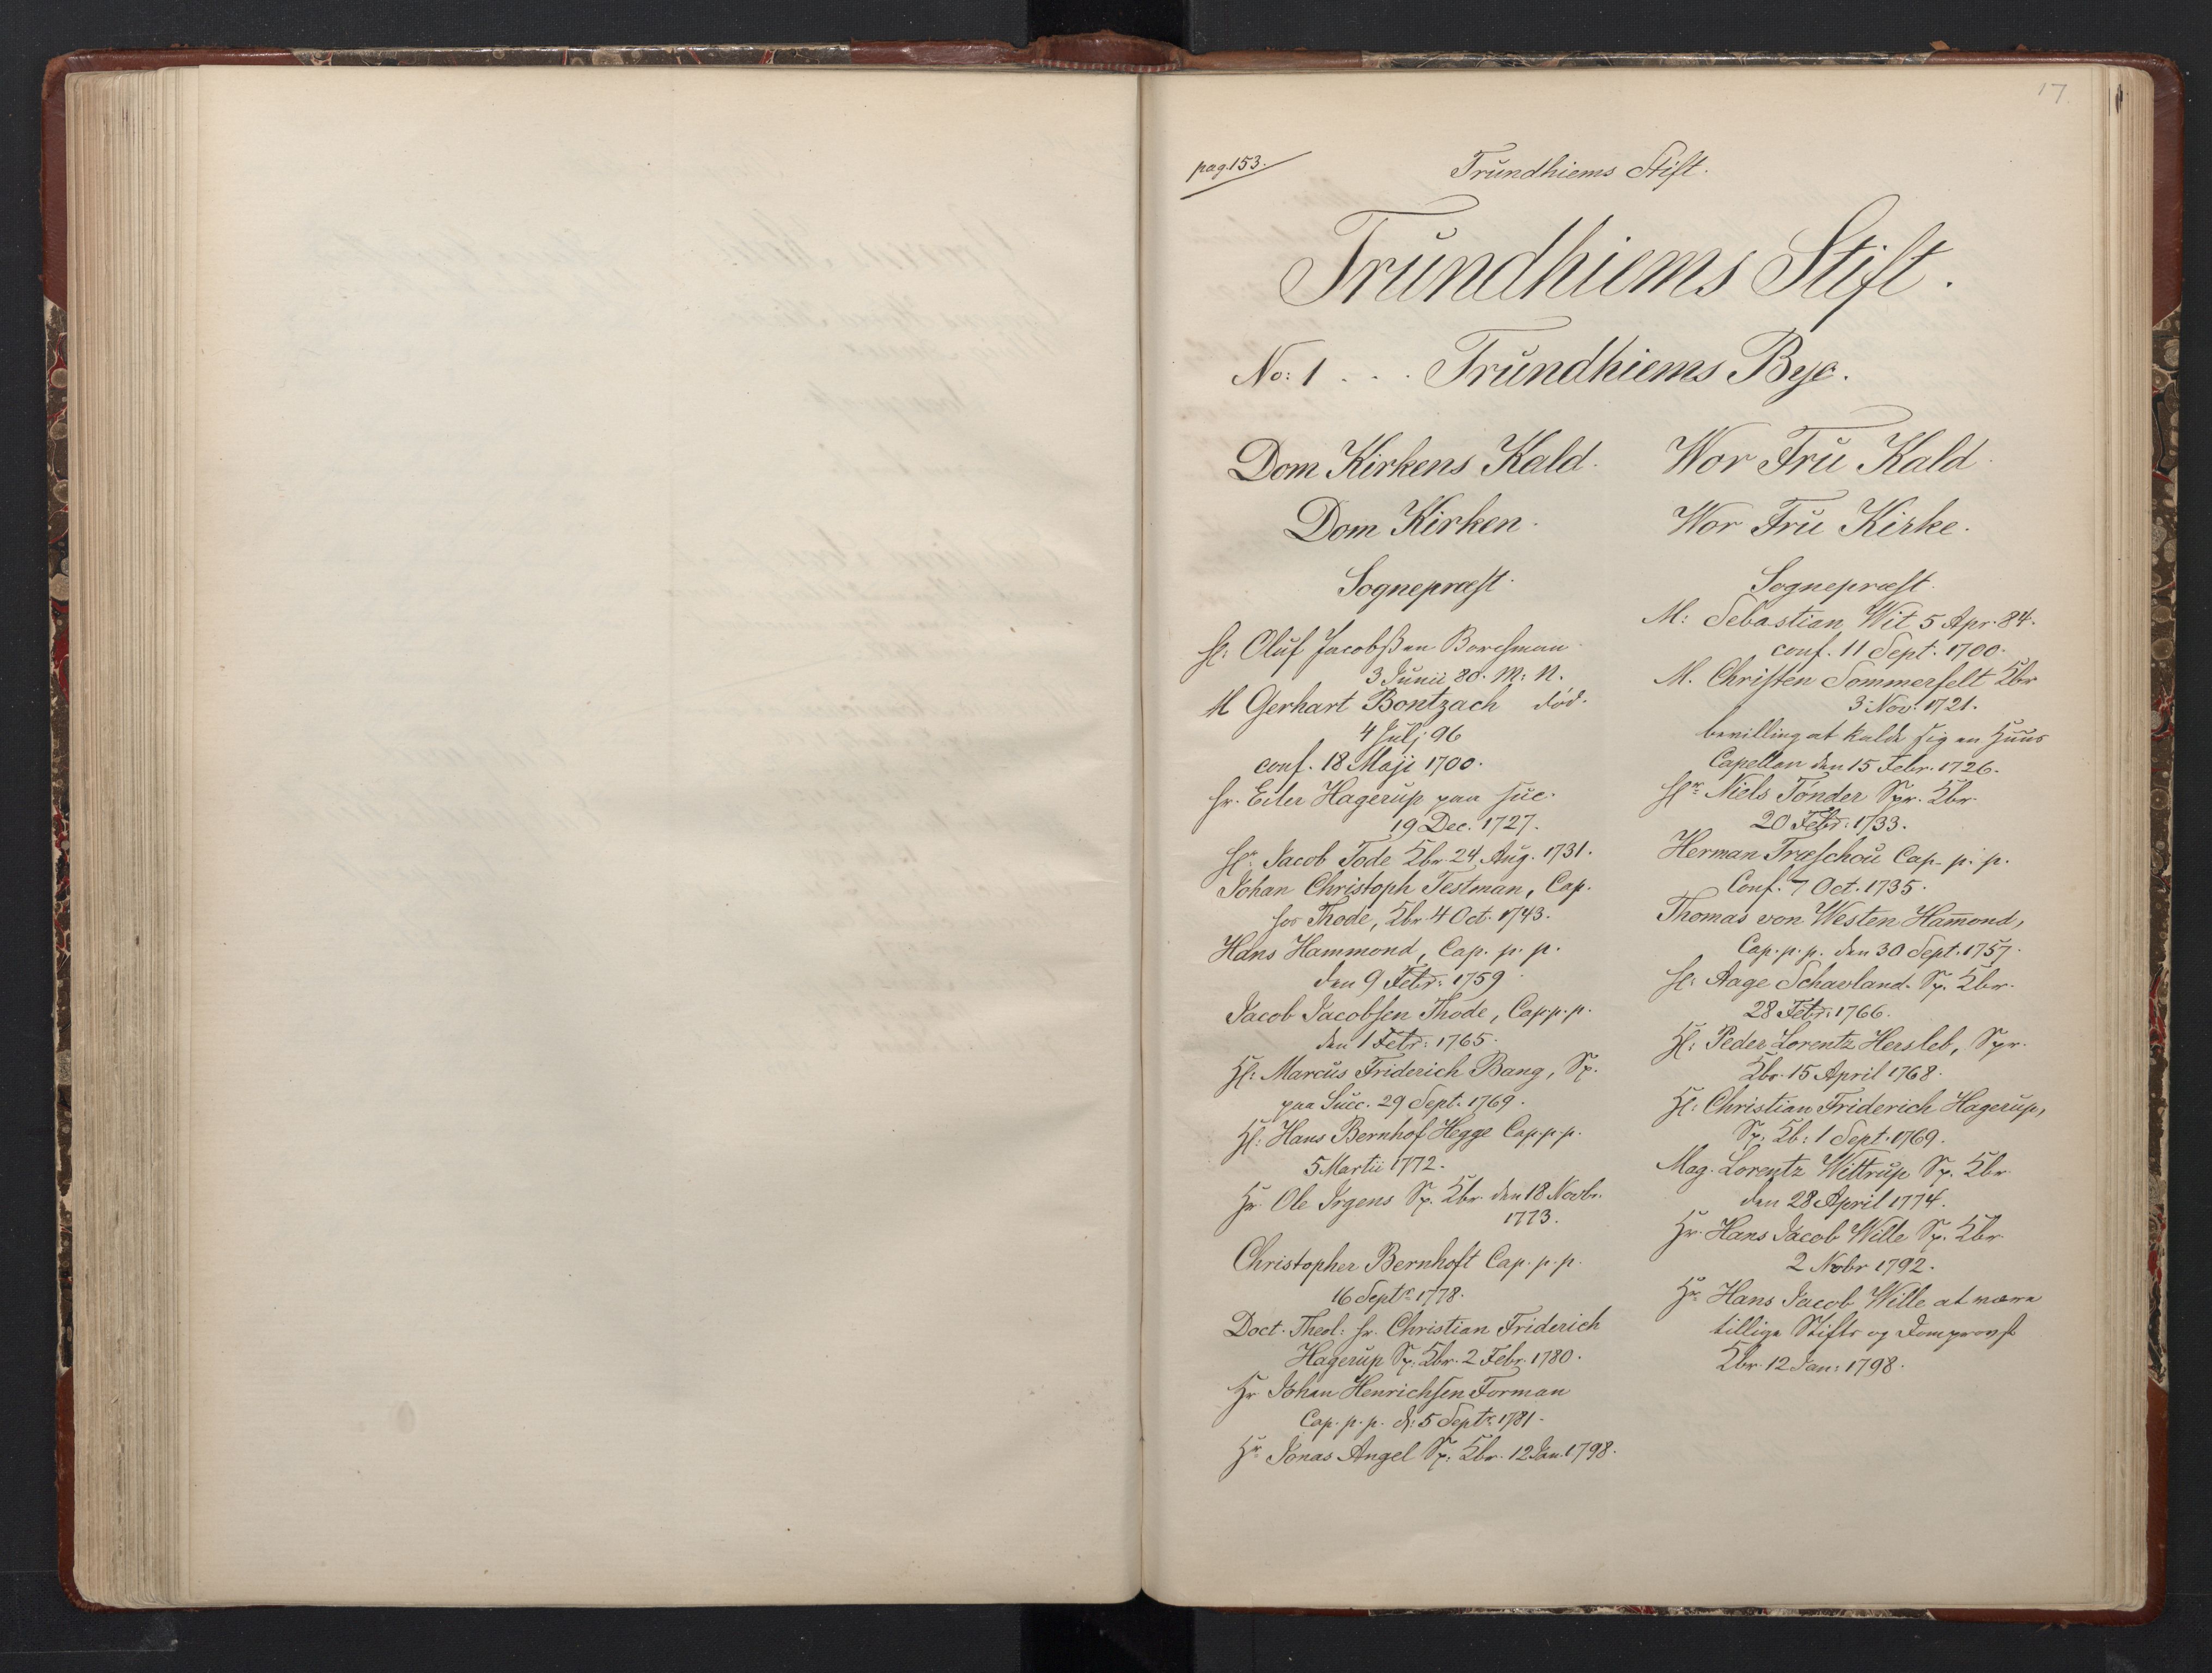 17.
pag. 153.
Trundhiems Stift.
Trundhiems Stift.
No: 1 . . . Trundhiems Bye.
Dom Kirkens Kald.
Dom Kirken.
Sognepræst.
H: Oluf Jacobßen Borchman
3 Junii 80. M: N.
M Gerhart Bontzach død.
4 Julj 96
conf. 18 Maji 1700.
hr. Eiler Hagerup paa suc.
19 Dec. 1727.
Hr. Jacob Tode Kbr. 24 Aug. 1731.
Johan Christoph Testman, Cap.
hos Thode, Kbr 4 Oct. 1743.
Hans Hammond, Cap. p. p.
den 9 Febr: 1759.
Jacob Jacobsen Thode, Cap. p. p.
den 1 Febr: 1765.
H: Marcus Friderich Bang, Sp.
paa Succ. 29 Sept. 1769.
H: Hans Bernhof Hegge Cap. p. p.
5 Martii 1772.
Hr. Ole Irgens Sp. Kbr. den 18 Novbr.
1773.
Christopher Bernhoft Cap. p. p.
16 Septr. 1778.
Doct. Theol: hr. Christian Friderich
Hagerup Sp. Kbr. 2 Febr. 1780.
Hr Johan Henrichsen Forman
Cap. p. p. d: 5 Septr. 1781.
Hr. Jonas Angel Sp: Kbr. 12 Jan. 1798.
Wor Fru Kald.
Wor Fru Kirke.
Sognepræst.
M: Sebastian Wit 5 Apr. 84.
conf. 11 Sept. 1700.
M. Christen Sommerfelt Kbr
3 Nov. 1721.
bevilling at kalde sig en Huus
Capellan den 15 Febr. 1726.
Hr. Niels Tønder Spr. Kbr.
20 Febr: 1733.
Herman Træschou Cap. p. p.
Conf. 7 Oct. 1735.
Thomas von Westen Ham̄ond,
Cap. p. p. den 30 Sept. 1757.
H: Aage Schavland. Sp. Kbr.
28 Febr: 1766.
H: Peder Lorentz Hersleb, Spr.
Kbr. 15 April 1768.
H: Christian Friderich Hagerup,
Sp: Kb: 1 Sept. 1769.
Mag. Lorentz Wittrup Sp. Kbr.
den 28 April 1774.
Hr. Hans Jacob Wille Sp. Kbr
2 Nobr 1792.
Hr. Hans Jacob Wille at være
tillige Stifts og Domprovst
Kbr. 12 Jan: 1798.